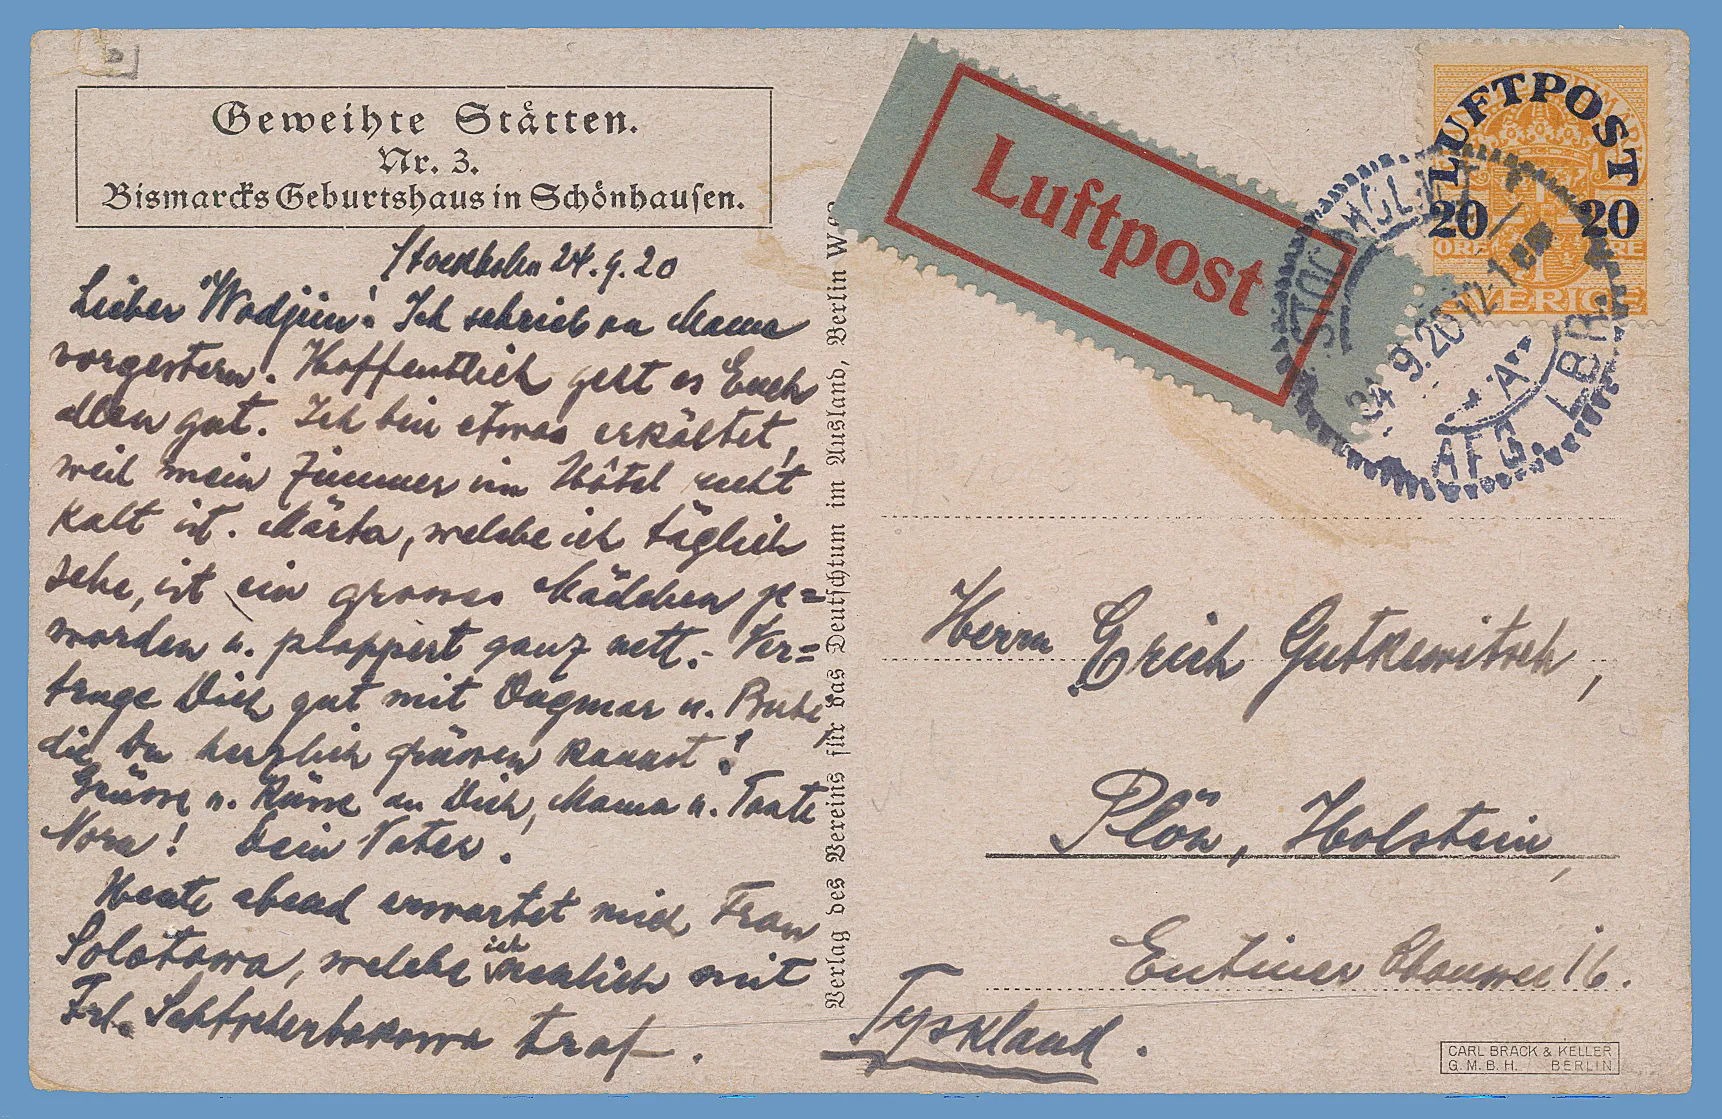 Geweihte Stätten.
Nr. 3.
Bismarcks Geburtshaus in Schönhausen.
Stockholm 24.9.20
Lieber Wodjim! Ich schrieb an Mama
vorgestern. Hoffentlich geht es Euch
allen gut. Ich bin etwas erkältet,
weil mein Zimmer im Hôtel recht
kalt ist. Märta, welche ich täglich
sehe, ist ein grosses Mädchen ge=
worden u. plappert ganz nett. - Ver=
trage Dich gut mit Dagmar u.
die Du herzlich grüssen kannst!
Grüsse u. Küsse an Dich, Mama u. Tante
Nora! Dein Vater.
Heute abend erwartet mich Frau
Solotowa, welche ich neulich mit
Frl. traf.
Verlag des Vereins für das Deutschtum im Ausland, Berlin W 62
Luftpost
LUFTPOST
20 20
ÖRE ÖRE
SVERIGE
STOCKHOLM
24 9.20 12-1 em
A
AFG. LBR.
Herrn Erich Gutkewitsch,
Plön, Holstein,
Eutiner 16.
Tyskland.
CARL BRACK & KELLER
G. M. B. H. BERLIN